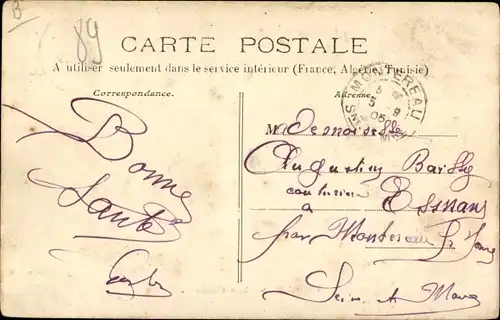 B
89
CARTE POSTALE
A utiliser seulement dans le service intérieur (France, Algérie, Tunisie)
Correspondance.
Adresse
MONTEREAU
5 - 9
05
SNE MNE
Bonne
Santé
Mademoiselle
Augustine
couturière
à Esmans
par Montereau
Seine et Marne